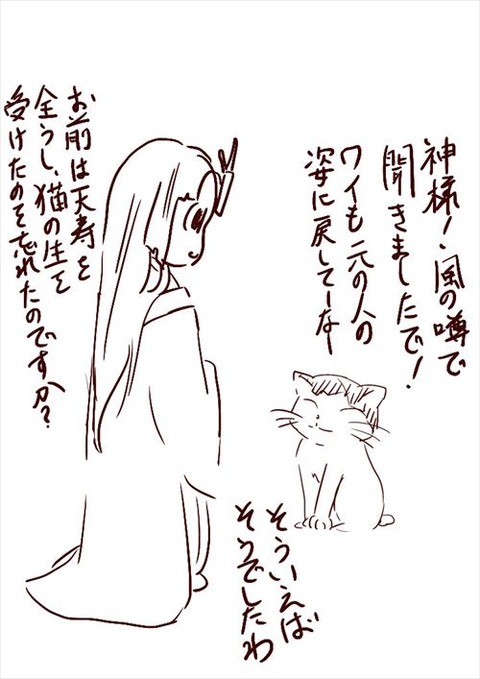 神様!風の噂で
聞きましたで!
ワイも元の人の
姿に戻してーなー
お前は天寿を
全うし、猫の生を
受けたのを忘れたのですか?
そういえば
そうでしたわ